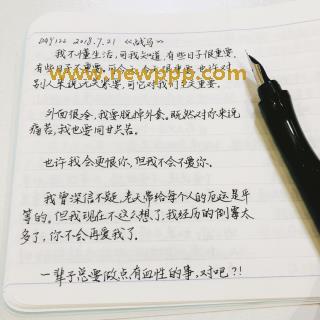 DAY122 2018.7.21 《战马》
我不懂生活,可我知道,有些日子很重要,
有些日子不重要,可今天
别人来说无关紧要,可它对我们至关重要。
www.newppp.com
外面很冷,我要脱掉外套。既然对你来说
痛苦,我也要同甘共苦。
也许我会更恨你,但我不会不爱你。
我曾深信不疑,老天带给每个人的厄运是平
等的。但我现在不这么想了,我经历的倒霉太
多了,你不会再爱我了。
一辈子总要做点有血性的事,对吧?!